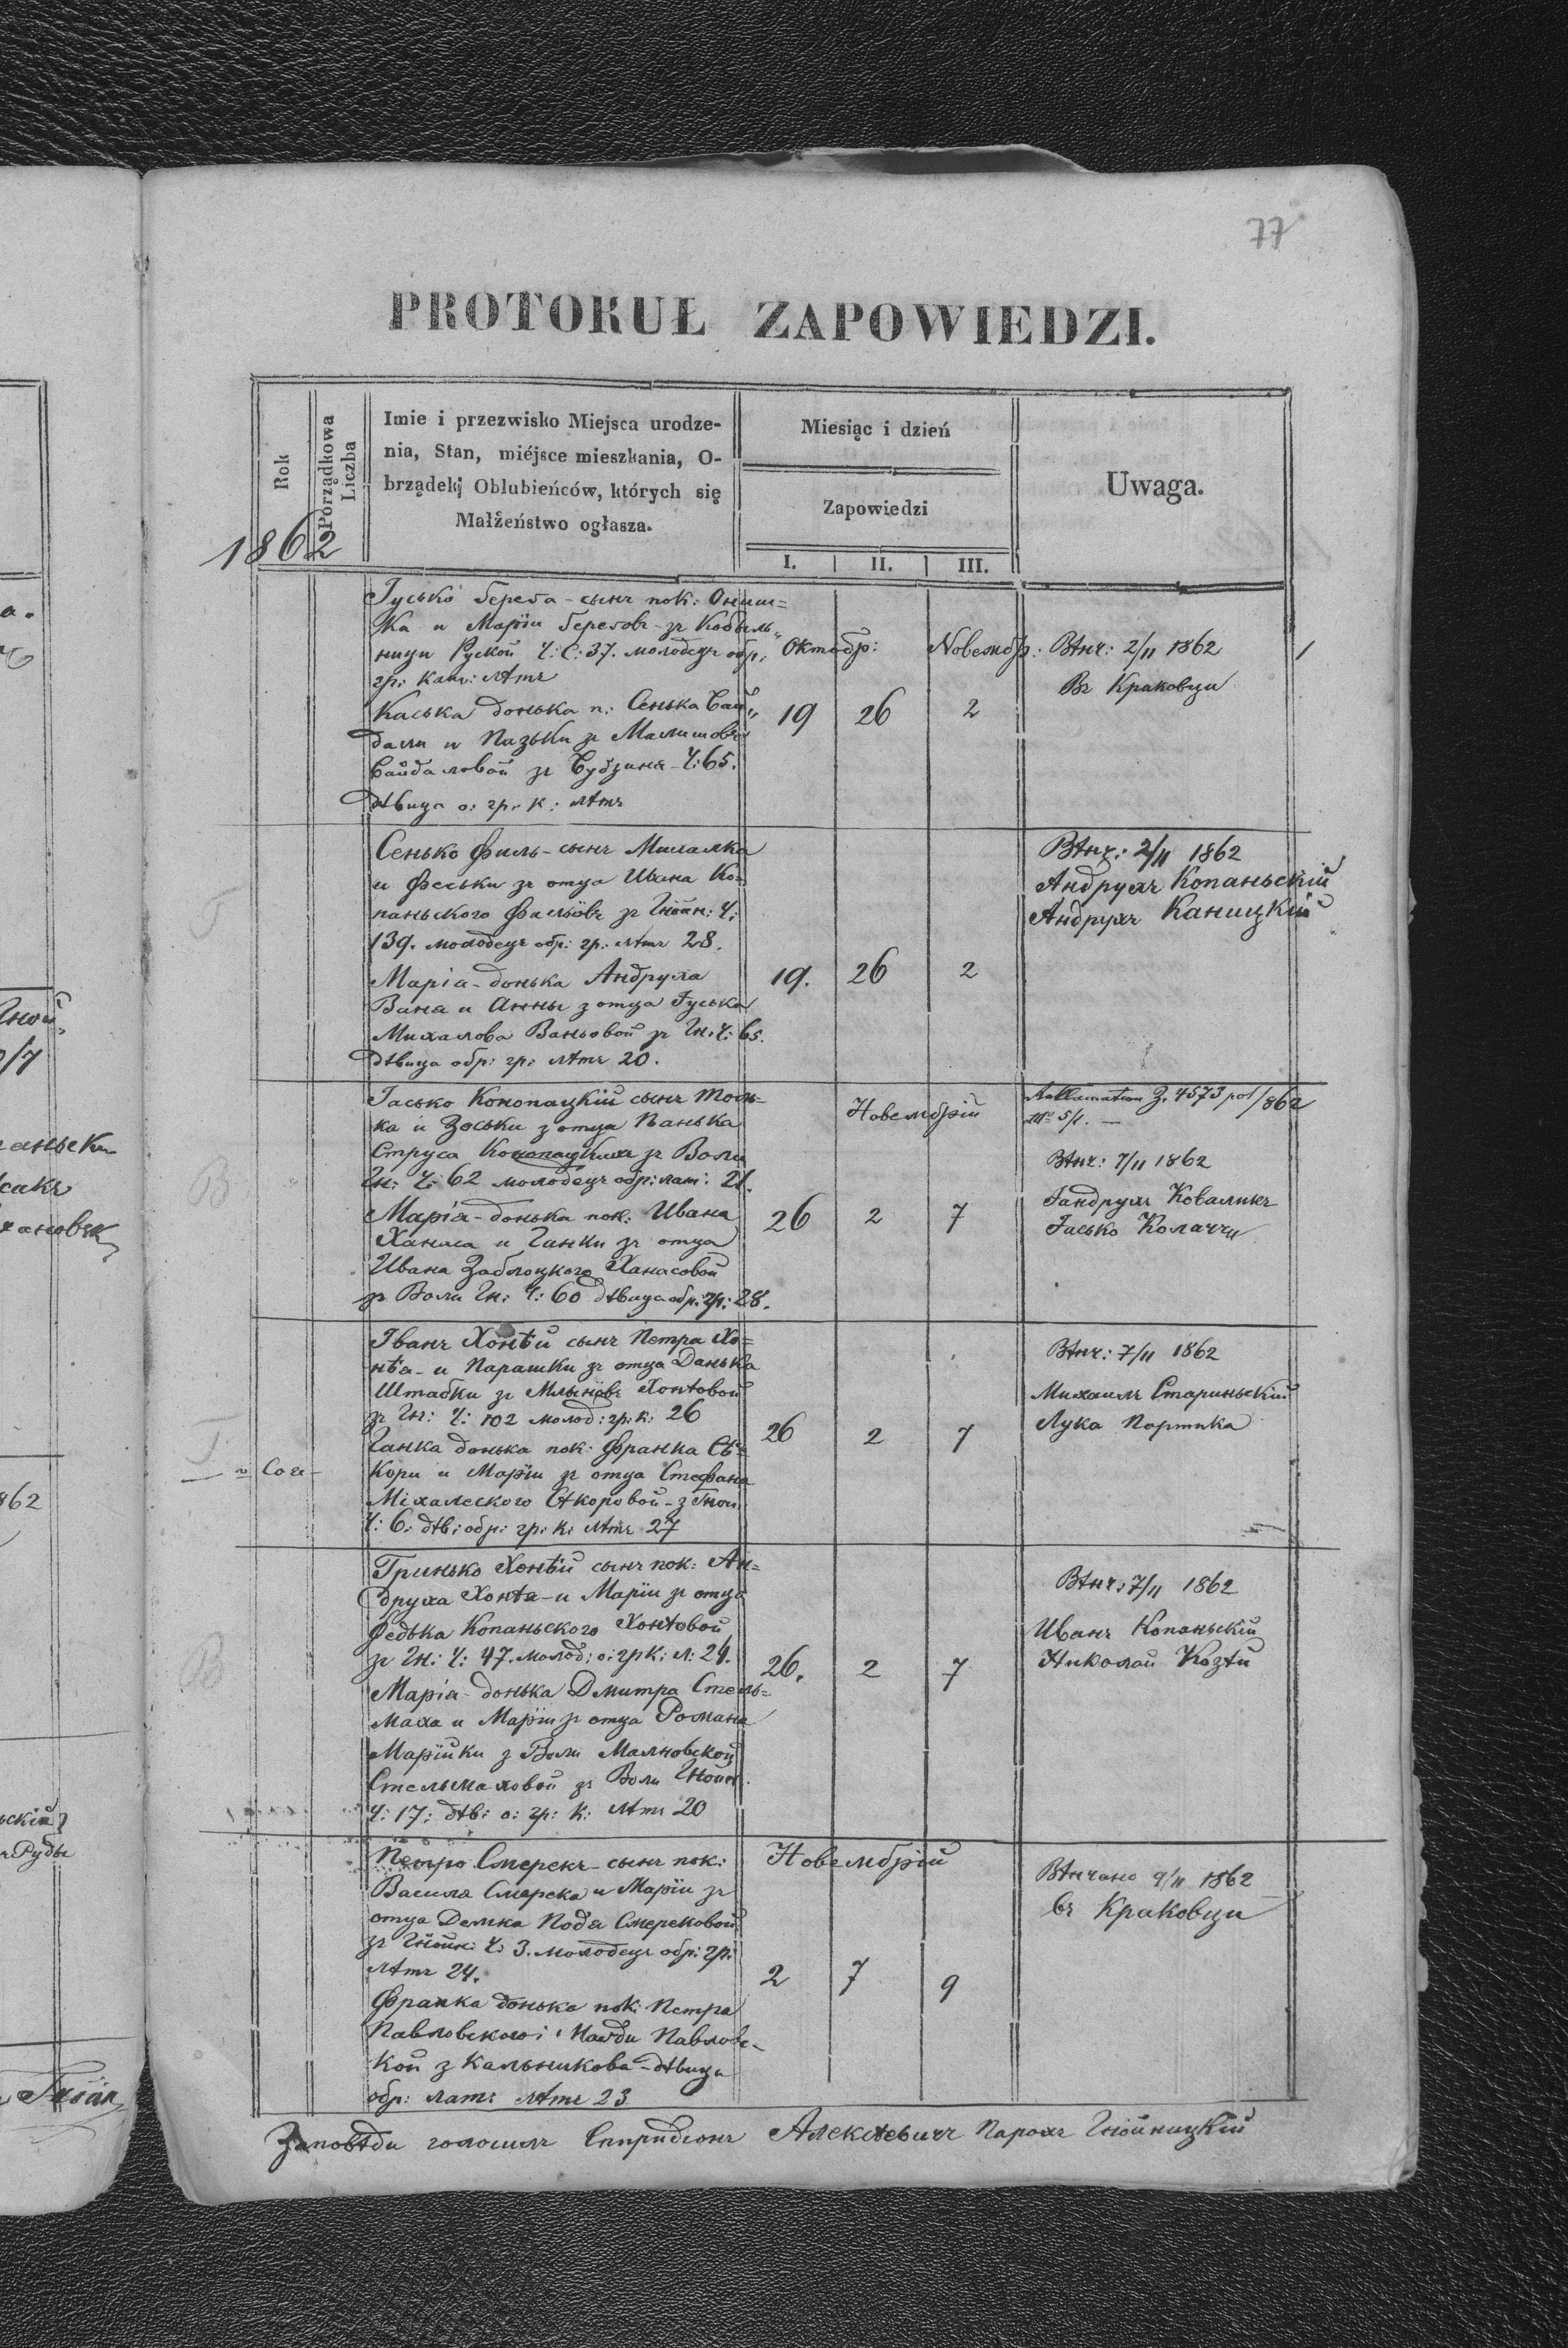 77
PROTOKUŁ ZAPOWIEDZI.
Rok
Porządkowa Liczba
Imie i przezwisko Miejsca urodze-
nia, Stan, miéjsce mieszkania, O-
brządek Oblubieńców, których się
Małżeństwo ogłasza.
Miesiąc i dzień
Zapowiedzi
I. II. III.
Uwaga.
1862
Гусько Береза - сынъ пок: Ониш=
ка и Маріи Березовъ - зъ Кобыль„
ници Руской Ч: С: 37. молодецъ обр:
гр: кат: лѣтъ
Каська донька п: Сенька Бай„
дали и Пазьки зъ
Байдаловой зъ Будзиня - Ч: 65.
дѣвица о: гр: к: лѣтъ
Октобр: Новембр:
19 26 2
Вѣнч: 2/11 1862
Въ Краковци
1
Сенько Филь - сынъ Михалка
и Феськи зъ отца Ивана Ко=
паньского Фильовъ зъ Гнойн: Ч:
139. молодецъ обр: гр: лѣтъ 28.
Марія - донька Андруха
Ваня и Анны з отца Гуська
Михалова Ваньовой зъ Гн: Ч: 65.
дѣвица обр: гр: лѣтъ 20.
19. 26 2
Вѣнч: 2/11 1862
Андрухъ Копаньскій
Андрухъ Каницкій
Гасько Конопацкій сынъ Тось=
ка и Зоськи з отца Панька
Струса зъ Воли
Гн: Ч: 62 молодецъ обр: лат: 21.
Марія - донька пок: Ивана
Ханаса и Ганки зъ отца
Ивана Заблоцкого Ханасовой
зъ Воли Гн: Ч: 60 дѣвица обр: гр: 28.
Новембрій
26 2 7
Z. 4573 /862
Вѣнч: 7/11 1862
Гандрухъ Коваликъ
Гасько
Іванъ Хонтѣй сынъ Петра Хо=
нтѣя - и Парашки зъ отца Данька
Штабки зъ Млыновъ Хонтовой
зъ Гн: Ч: 102 молод: гр: к: 26
Ганка донька пок: Франка Сѣ=
кори и Маріи зъ отца Стефана
Міхалеского Сѣкоровой - з Гной
Ч: 6: дѣв: обр: гр: к: лѣтъ 27
26 2 7
Вѣнч: 7/11 1862
Михаилъ Стариньскій
Лука Портика
Гринько Хонтѣй сынъ пок: Ан=
друха Хонтѣя - и Маріи зъ отца
Федька Копаньского Хонтовой
зъ Гн: Ч: 47. молод: о: гр к: л: 24.
Марія - донька Дмитра Стель=
маха и Маріи зъ отца Романа
Марійки з Воли Малновской
Стельмаховой зъ Воли Гнойн.
Ч: 17: дѣв: о: гр: к: лѣтъ 20
26. 2 7
Вѣнч: 7/11 1862
Иванъ Копаньскій
Николай Козѣй
Петро Смерекъ - сынъ пок:
Василя Смерека и Маріи зъ
отца Демка Подя Смерековой
зъ Гнойн: Ч: 3. молодецъ обр: гр:
лѣтъ 24.
Франка донька пок: Петра
Павловского и Павловс-
кой з Кальникова - дѣвица
обр: лат: лѣтъ 23
Новембрій
2 7 9
Вѣнчано 9/11 1862
въ Краковци
Заповѣди голосилъ Спиридіонъ Алексѣевичъ Парохъ Гнойницкій